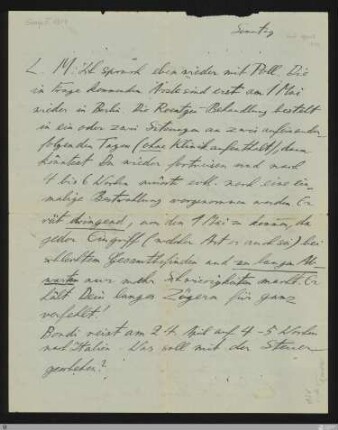 Sonntag
L. M: Ich sprach eben wieder mit Poll. Die
in Frage kommenden Ärzte sind erst am 1 Mai
wieder in Berlin. Die Roentgen-Behandlung besteht
in ein oder zwei Sitzungen an zwei aufeinander
folgenden Tagen (ohne Klinikaufenthalt), dann
könntest Du wieder fortreisen und nach
4 bis 6 Wochen müsste evtl. noch eine ein-
malige Bestrahlung vorgenommen werden. Er
rät dringend, um den 1 Mai zu kommen, da
jeder Eingriff (welcher Art er auch sei) bei
schlechtem Gesamtbefinden und zu langem
warten nur mehr Schwierigkeiten macht. Er
hält Dein langes Zögern für ganz
verfehlt!
Bondi reist am 24. April auf 4-5 Wochen
nach Italien. Was soll mit der Steuer
geschehen?